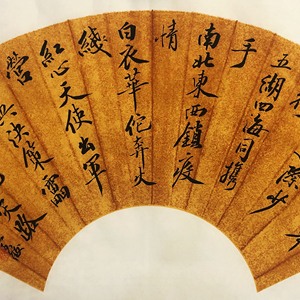 際少
五湖四海同攜
手
南北東西鎮疫
情
白衣華佗奔火
綫
紅心天使出軍
營
決策雷
路